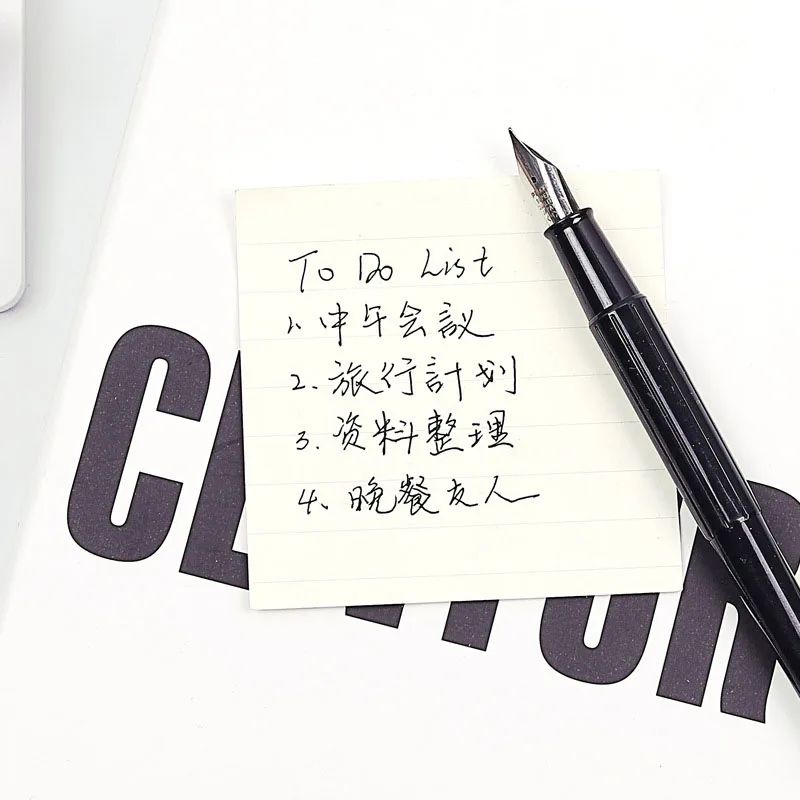 To Do List
1. 中午会議
2. 旅行計划
3. 资料整理
4. 晚餐友人